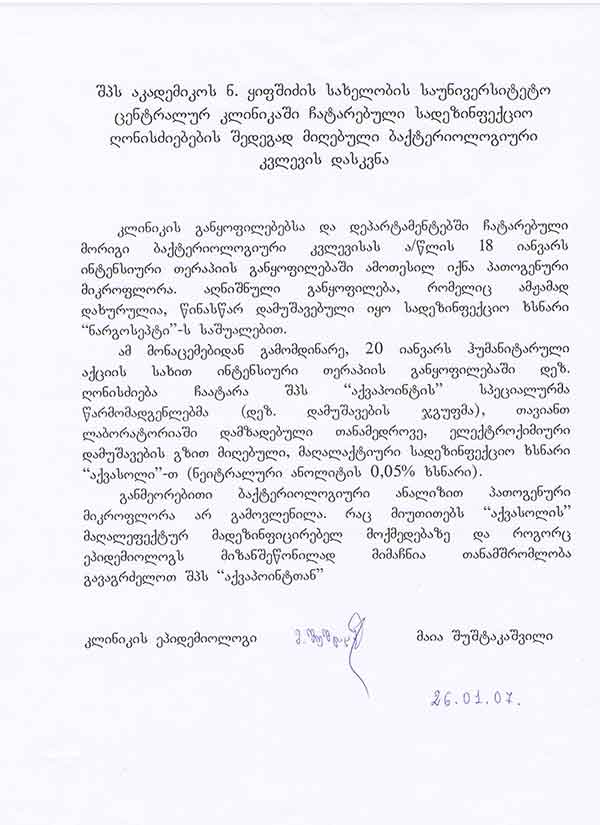 შპს აკადემიკოს ნ. ყიფშიძის სახელობის საუნივერსიტეტო
ცენტრალურ კლინიკაში ჩატარებული სადეზინფექციო
ღონისძიებების შედეგად მიღებული ბაქტერიოლოგიური
კვლევის დასკვნა
კლინიკის განყოფილებებსა და დეპარტამენტებში ჩატარებული
მორიგი ბაქტერიოლოგიური კვლევისას ა/წლის 18 იანვარს
ინტენსიური თერაპიის განყოფილებაში ამოთესილ იქნა პათოგენური
მიკროფლორა. აღნიშნული განყოფილება, რომელიც ამჟამად
დახურულია, წინასწარ დამუშავებული იყო სადეზინფექციო ხსნარი
“ნარგოსეპტი”-ს საშუალებით.
ამ მონაცემებიდან გამომდინარე, 20 იანვარს ჰუმანიტარული
აქციის სახით ინტენსიური თერაპიის განყოფილებაში დეზ.
ღონისძიება ჩაატარა შპს “აქვაპოინტის” სპეციალურმა
წარმომადგენლებმა (დეზ. დამუშავების ჯგუფმა), თავიანთ
ლაბორატორიაში დამზადებული თანამედროვე, ელექტროქიმიური
დამუშავების გზით მიღებული, მაღალაქტიური სადეზინფექციო ხსნარი
“აქვასოლი”-თ (ნეიტრალური ანოლიტის 0,05% ხსნარი).
განმეორებითი ბაქტერიოლოგიური ანალიზით პათოგენური
მიკროფლორა არ გამოვლენილა. რაც მიუთითებს “აქვასოლის”
მაღალეფექტურ მადეზინფიცირებელ მოქმედებაზე და როგორც
ეპიდემიოლოგს მიზანშეწონილად მიმაჩნია თანამშრომლობა
გავაგრძელოთ შპს “აქვაპოინტთან”
კლინიკის ეპიდემიოლოგი მაია შუშტაკაშვილი
26.01.07.